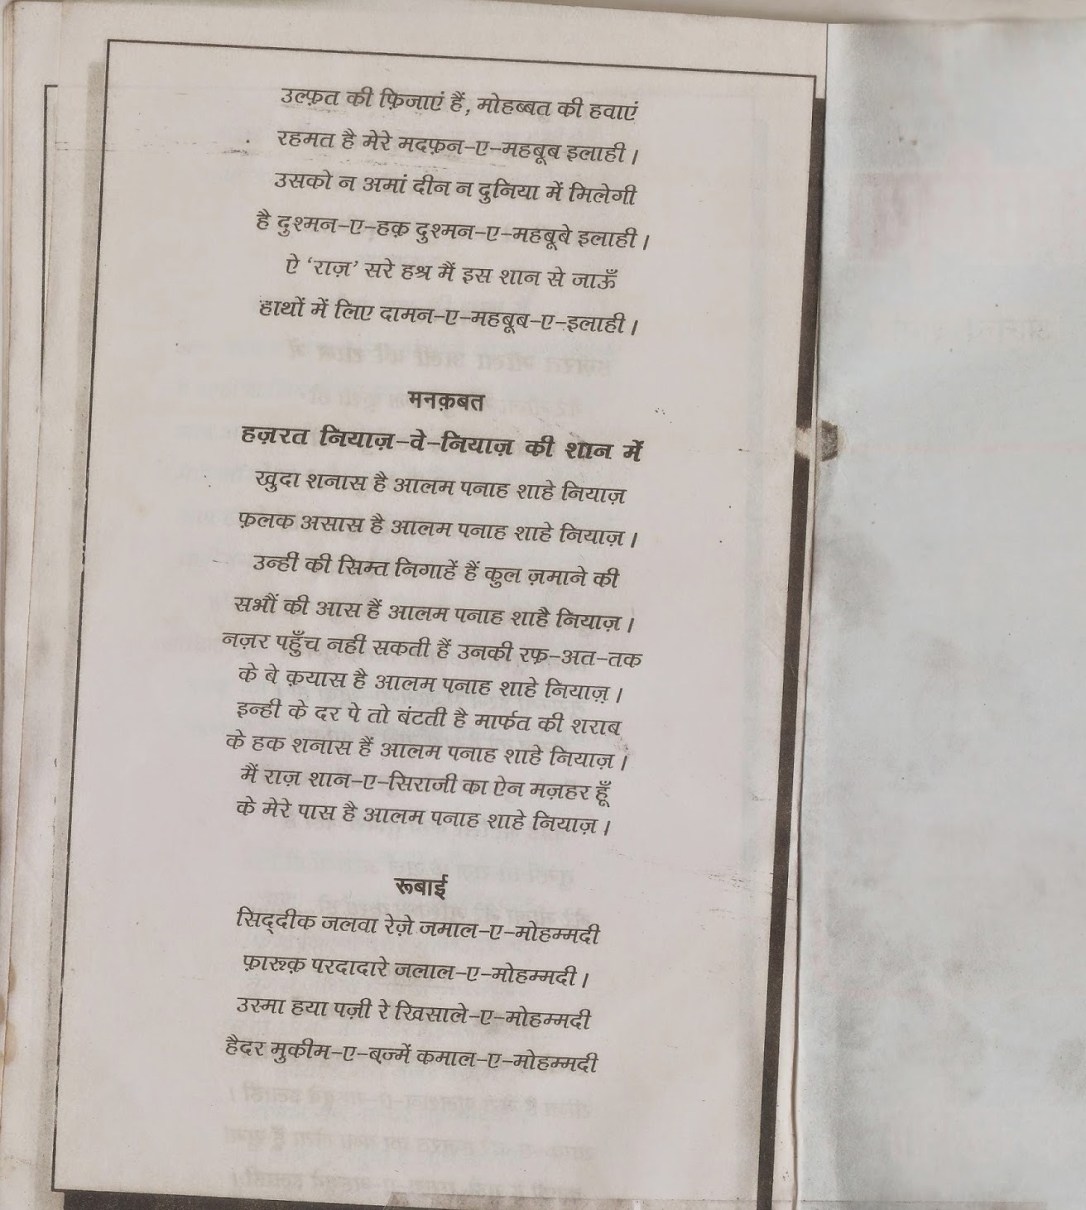 उल्फ़त की फ़िजाएं हैं, मोहब्बत की हवाएं
रहमत है मेरे मदफ़न-ए-महबूब इलाही।
उसको न अमां दीन न दुनिया में मिलेगी
है दुश्मन-ए-हक़ दुश्मन-ए-महबूबे इलाही।
ऐ 'राज़' सरे हश्र मैं इस शान से जाऊँ
हाथों में लिए दामन-ए-महबूब-ए-इलाही।
मनक़बत
हज़रत नियाज़-वे-नियाज़ की शान में
खुदा शनास है आलम पनाह शाहे नियाज़
फ़लक असास है आलम पनाह शाहे नियाज़।
उन्हीं की सिम्त निगाहें हैं कुल ज़माने की
सभौं की आस हैं आलम पनाह शाहै नियाज़।
नज़र पहुँच नहीं सकती हैं उनकी रफ़-अत-तक
के बे क़यास है आलम पनाह शाहे नियाज़।
इन्ही के दर पे तो बंटती है मार्फत की शराब
के हक शनास हैं आलम पनाह शाहे नियाज़।
मैं राज़ शान-ए-सिराजी का ऐन मज़हर हूँ
के मेरे पास है आलम पनाह शाहे नियाज़।
रूबाई
सिद्दीक जलवा रेज़े जमाल-ए-मोहम्मदी
फ़ारूक़ परदादारे जलाल-ए-मोहम्मदी।
उस्मा हया पज़ी रे खिसाले-ए-मोहम्मदी
हैदर मुकीम-ए-बज़्में कमाल-ए-मोहम्मदी